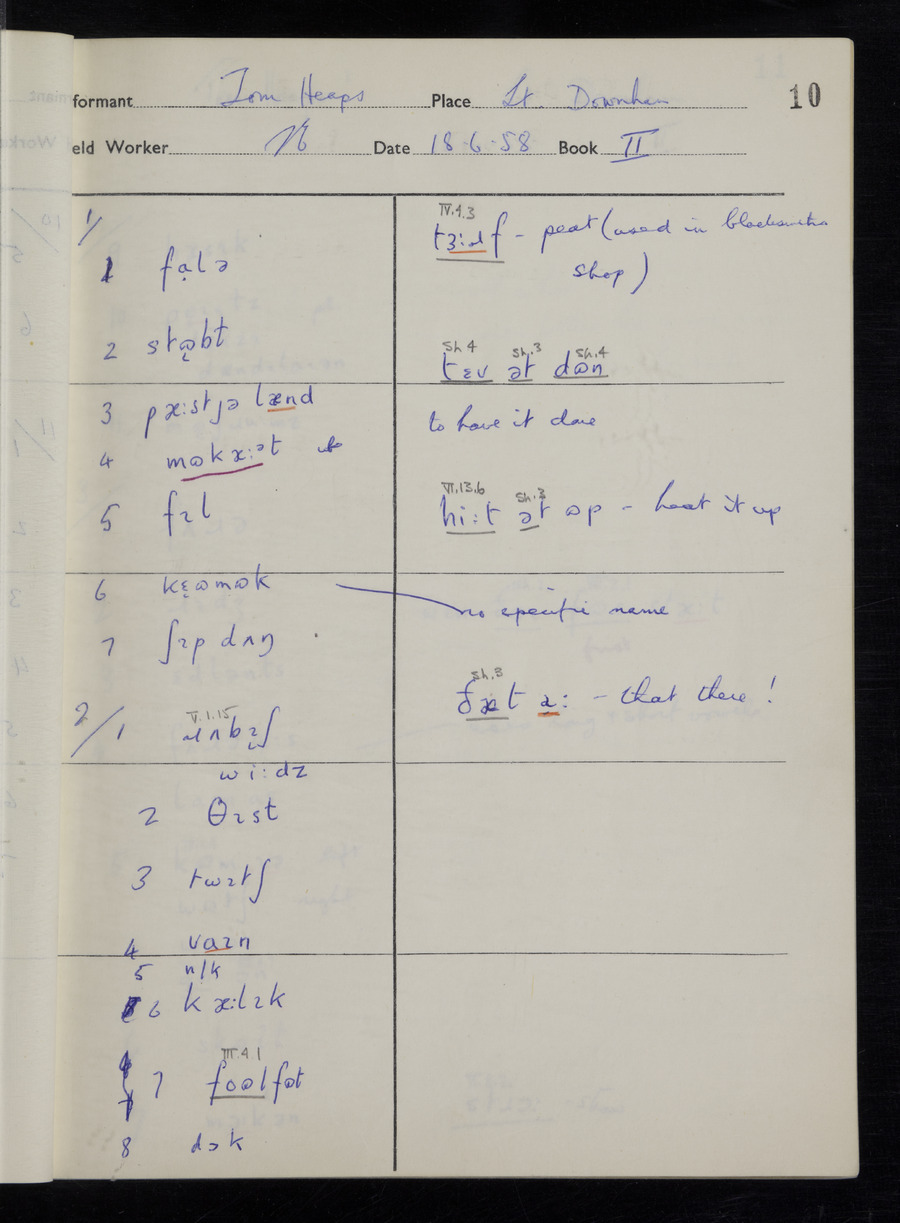 formant Tom Heaps Place Lt. Downham 10
eld Worker Date 18-6-58 Book II
1/
1 fa̞lə
2 stɷ̞bt
3 pæ:stjə lænd
4 mɷkæ:ət
5 fɪl
6 kɛ̞ɷmɷk
7 ʃɪp dʌŋ
2/1 V.1.15
ɹʌbɪʃ
wi:dz
2 θɪst
3 twɪtʃ
4 vaɪn
5 n/k
6 kæ:lɪk
III.4.1
7 foɷlfɷt
8 dɔk
IV.4.3
tɜ:ɹf - peat (used in blacksmiths
shop)
Sh 4 Sh.3 Sh.4
tɛv ət dɷn
to have it done
VI.13.6 Sh.3
hi:t ət ɷp - heat it up
no specific name
Sh.3
ðæt æ: - that there!